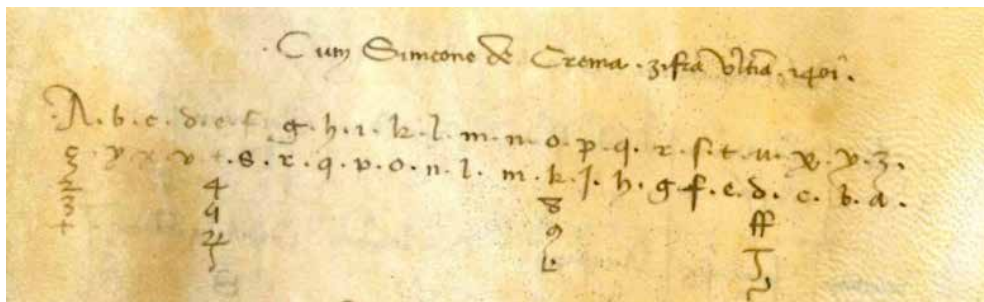 . Cum Simeone de Crema . zifra . 1401 .
. A . b . c . d . e . f . g . h . i . k . l . m . n . o . p . q . r . s . t . u . x . y . z .
y x v t . s . r . q . p . o . n . l . m . k . j . h . g . f . e . d . c . b . a .
2 4 8 ff
3 9